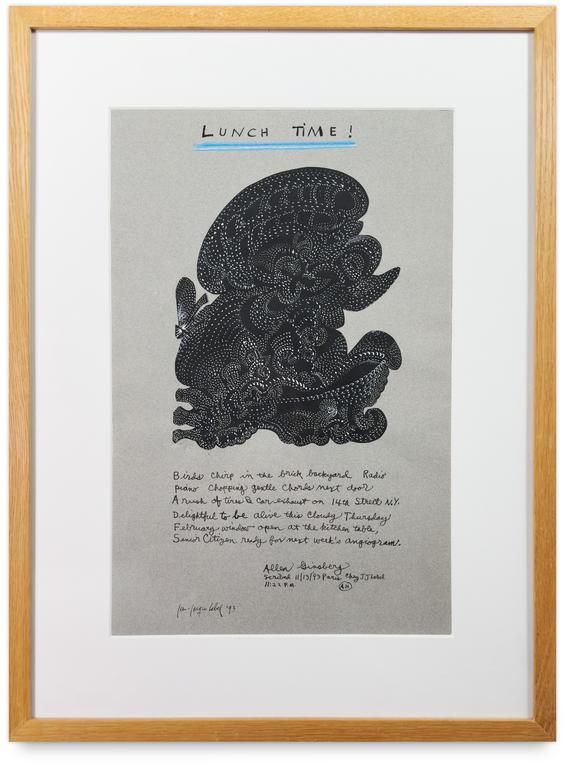 LUNCH TIME!
Birds chirp in the brick backyard Radio
piano chopping gentle chords next door
A rush of tires & car exhaust on 14th Street N.Y.
Delightful to be alive this cloudy Thursday
February window open at the kitchen table,
Senior Citizen ready for next week's angiogram.
Allen Ginsberg
Scribed 11/13/93 Paris Chez J J Lebel
11:22 P.M. AH
Jean-Jacques Lebel '93